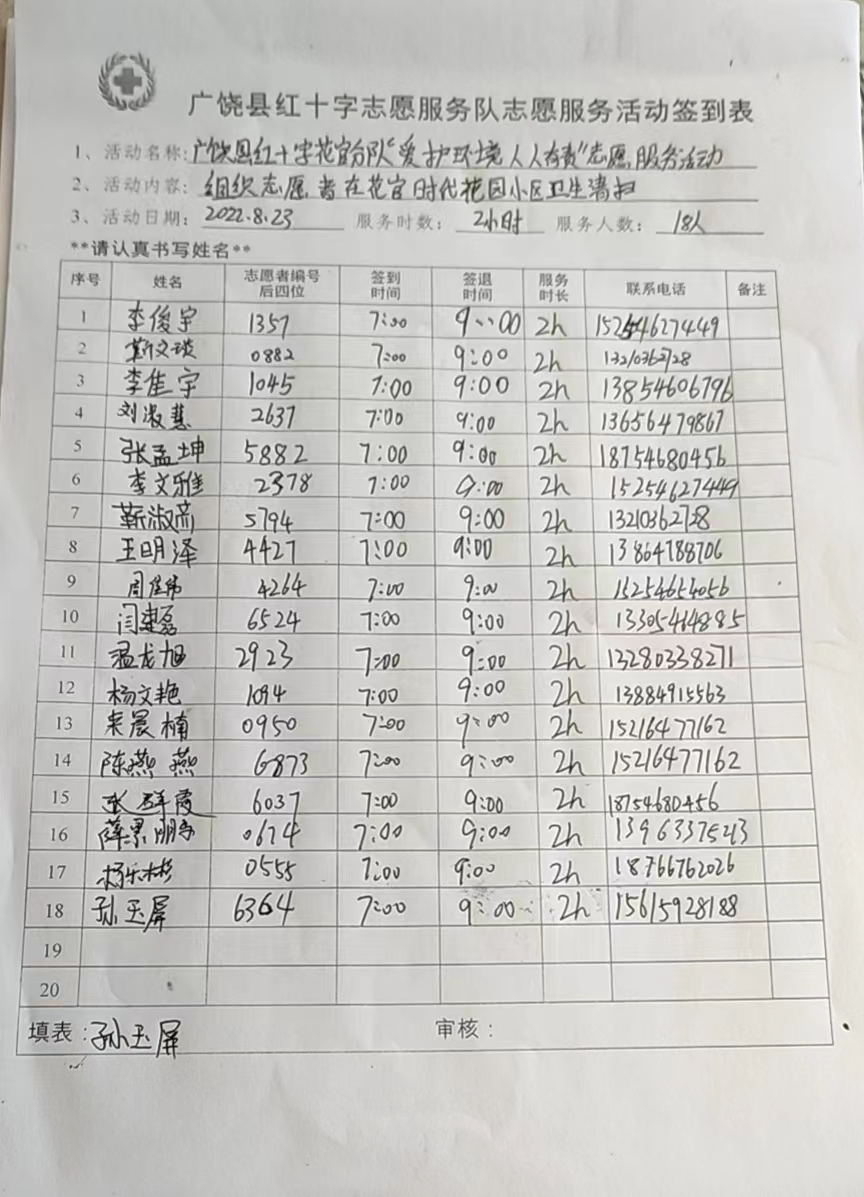 广饶县红十字志愿服务队志愿服务活动签到表
1、活动名称:广饶县红十字花官分队“爱护环境人人有责”志愿服务活动
2、活动内容:组织志愿者在花官时代花园小区卫生清扫
3、活动日期:2022.8.23 服务时数:2小时 服务人数:18人
**请认真书写姓名**
序号 姓名 志愿者编号后四位 签到时间 签退时间 服务时长 联系电话 备注
1 李俊宇 1357 7:00 9:00 2h 15254627449
2 靳文琰 0882 7:00 9:00 2h
3 李佳宇 1045 7:00 9:00 2h 13854606796
4 刘淑慧 2637 7:00 9:00 2h 13656479867
5 张孟坤 5882 7:00 9:00 2h 18754680456
6 李文雅 2378 7:00 9:00 2h 15254627449
7 靳淑斋 5794 7:00 9:00 2h
8 王明泽 4427 7:00 9:00 2h 13864788706
9 周佳伟 4264 7:00 9:00 2h 15254654056
10 闫建磊 6524 7:00 9:00 2h 13305464885
11 孟龙旭 2923 7:00 9:00 2h 13280338271
12 杨文艳 1094 7:00 9:00 2h 13884915563
13 来晨楠 0950 7:00 9:00 2h 15216477162
14 陈燕燕 6873 7:00 9:00 2h 15216477162
15 张群霞 6037 7:00 9:00 2h 18754680456
16 薛景鹏 0674 7:00 9:00 2h
17 杨乐彬 0555 7:00 9:00 2h 18766762026
18 孙玉屏 6364 7:00 9:00 2h 15615928188
19
20
填表:孙玉屏 审核: